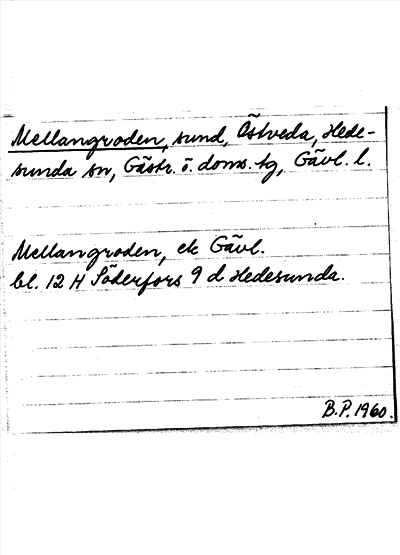 Mellangroden, sund, Östveda, Hede-
sunda sn, Gästr. ö. doms. tg, Gävl. l.
Mellangroden, ek Gävl.
bl. 12 H Söderfors 9 d Hedesunda.
B.P. 1960.